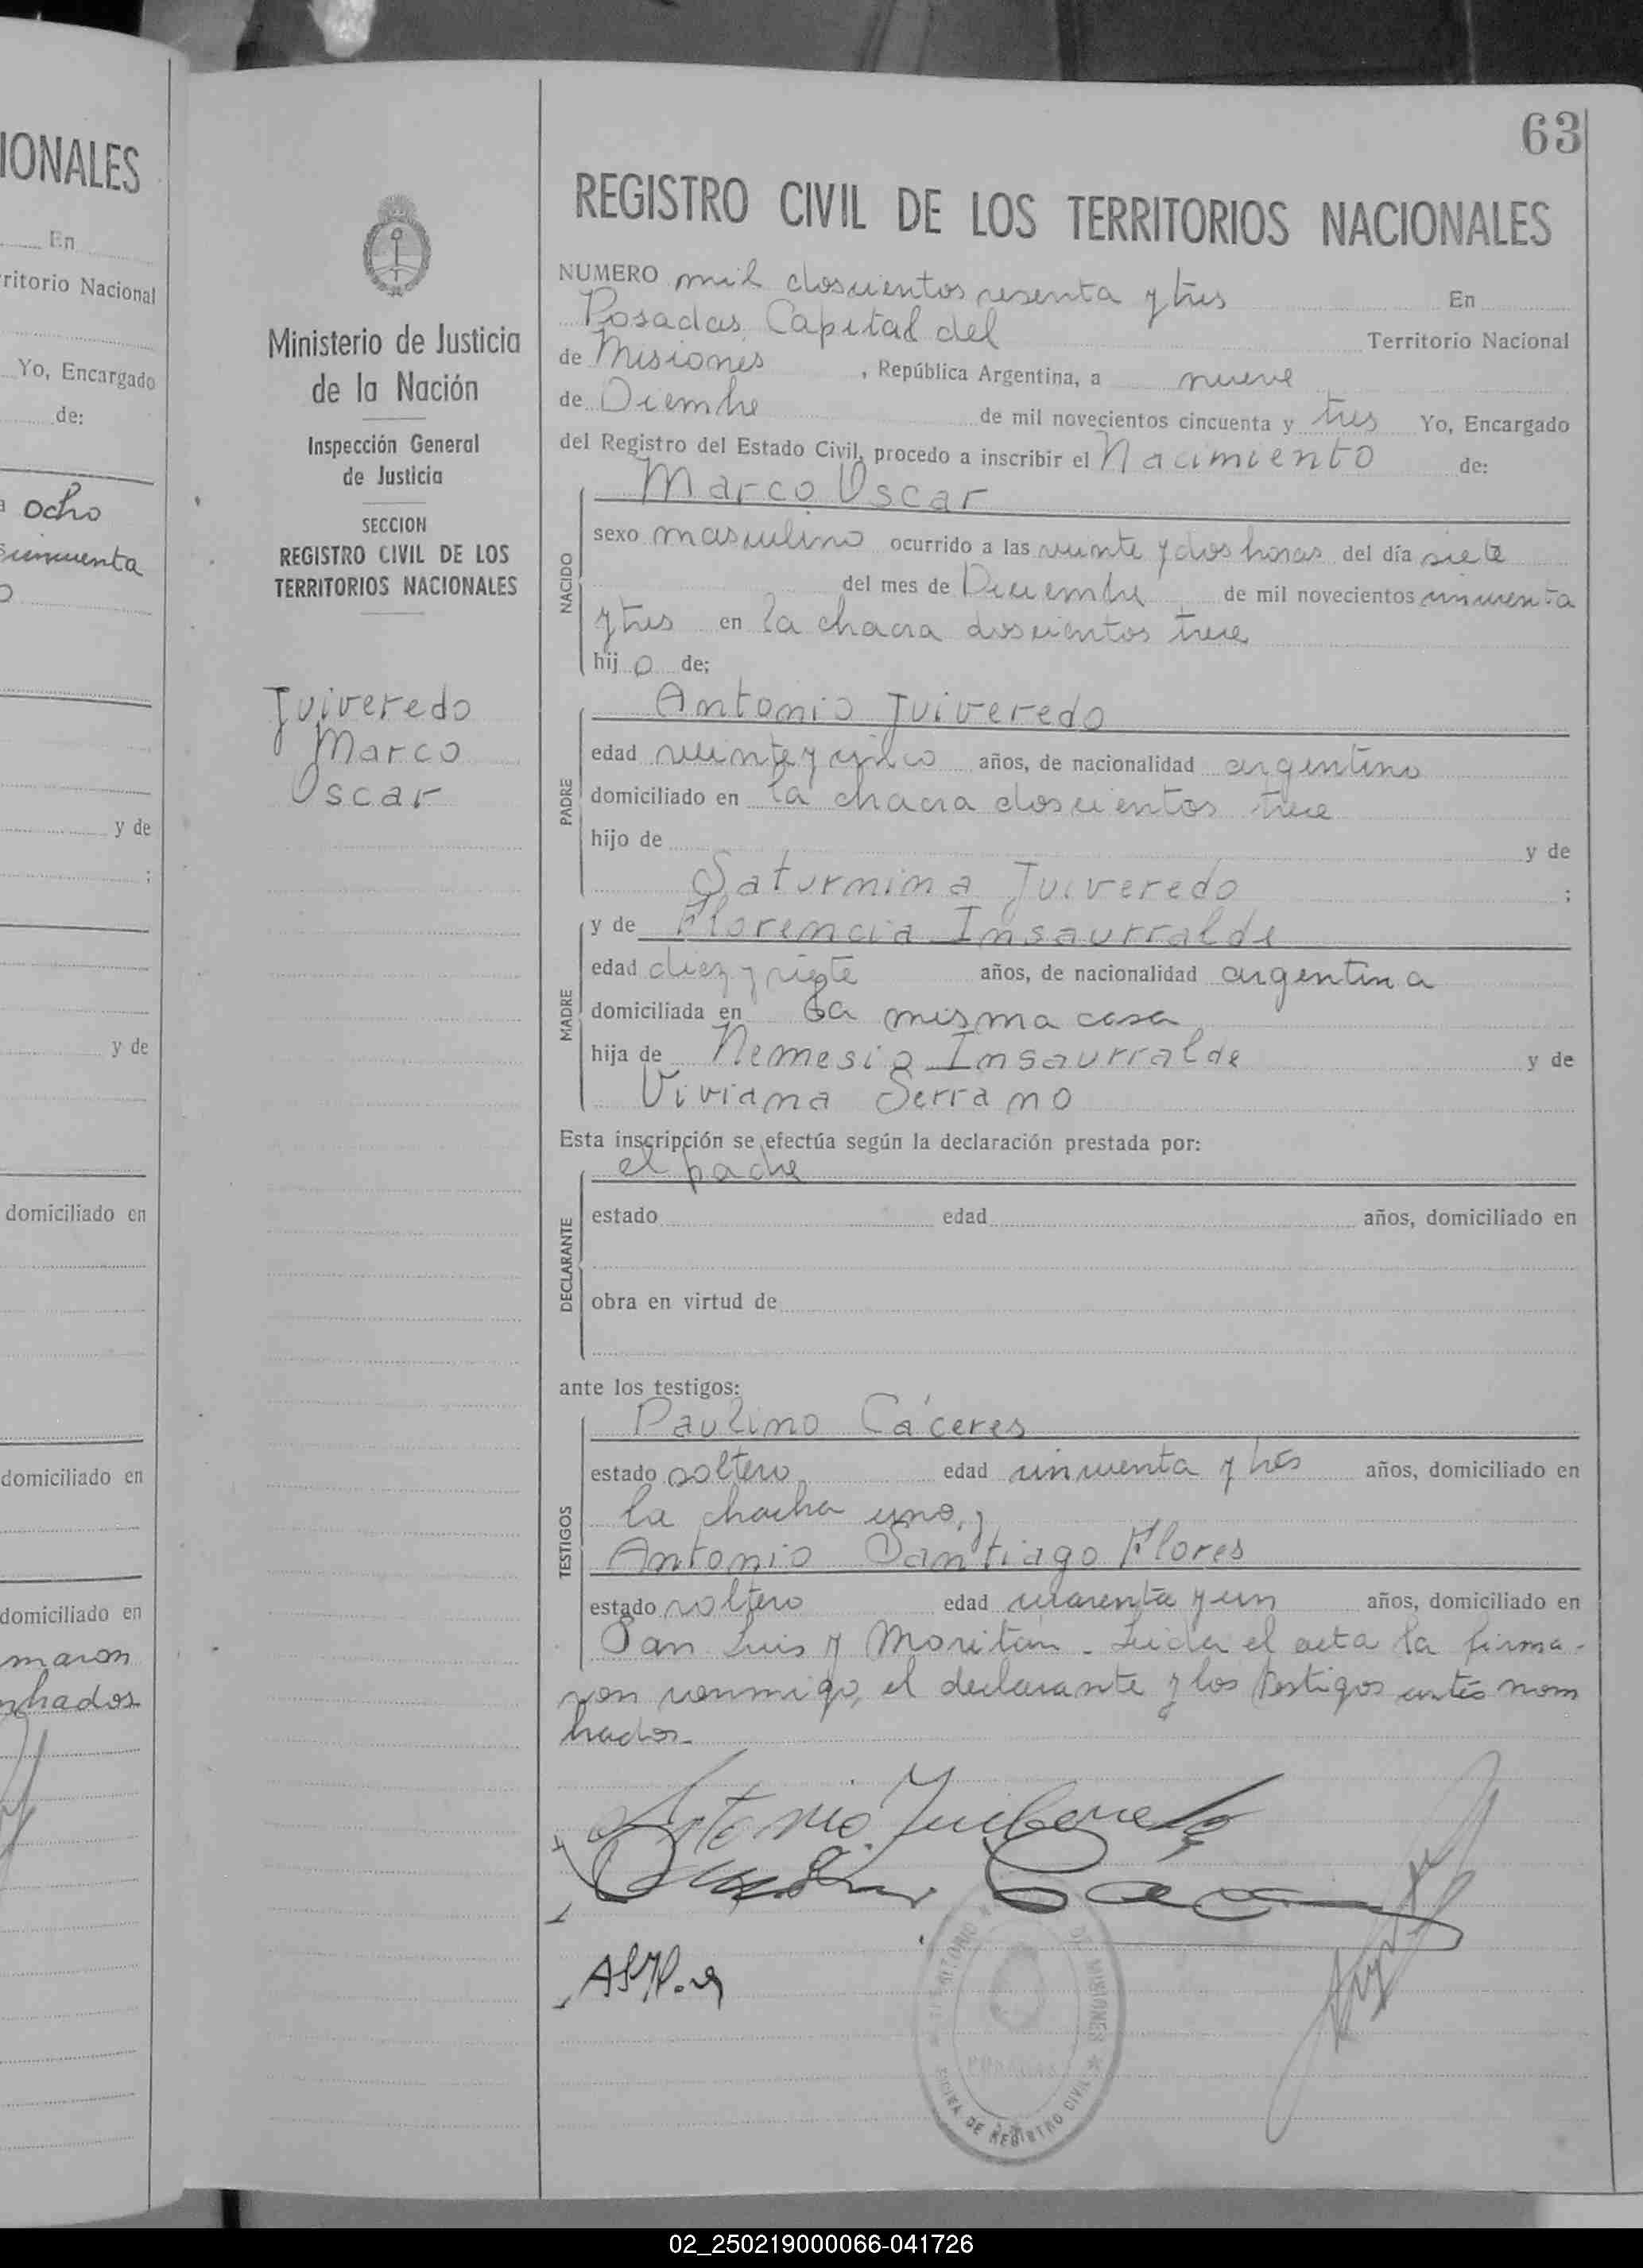 IONALES
En
ritorio Nacional
Yo, Encargado
de:
a ocho
cincuenta
o
y de
;
y de
domiciliado en
domiciliado en
domiciliado en
maron
mbrados
Ministerio de Justicia
de la Nación
Inspección General
de Justicia
SECCION
REGISTRO CIVIL DE LOS
TERRITORIOS NACIONALES
Juiveredo
Marco
Oscar
63
REGISTRO CIVIL DE LOS TERRITORIOS NACIONALES
NUMERO mil doscientos sesenta y tres En
Posadas Capital del Territorio Nacional
de Misiones, República Argentina, a nueve
de Diembre de mil novecientos cincuenta y tres Yo, Encargado
del Registro del Estado Civil, procedo a inscribir el Nacimiento de:
NACIDO
Marco Oscar
sexo masculino ocurrido a las veinte y dos horas del día siete
del mes de Diciembre de mil novecientos cincuenta
y tres en la chacra doscientos trece
hijo de;
PADRE
Antonio Juiveredo
edad veinte y cinco años, de nacionalidad argentino
domiciliado en la chacra doscientos trece
hijo de y de
Saturnina Juiveredo ;
MADRE
y de Florencia Insaurralde
edad diez y siete años, de nacionalidad argentina
domiciliada en la misma casa
hija de Nemesio Insaurralde y de
Viviana Serrano
Esta inscripción se efectúa según la declaración prestada por:
DECLARANTE
el padre
estado edad años, domiciliado en
obra en virtud de
ante los testigos:
TESTIGOS
Paulino Cáceres
estado soltero edad cincuenta y tres años, domiciliado en
la chacra uno, y
Antonio Santiago Flores
estado soltero edad cuarenta y un años, domiciliado en
San Luis y Moritán - Leida el acta la firma-
ron conmigo, el declarante y los testigos antes nom
brados.-
Antonio
TERRITORIO DE MISIONES
POSADAS
DE REGISTRO CIVIL
02_250219000066-041726